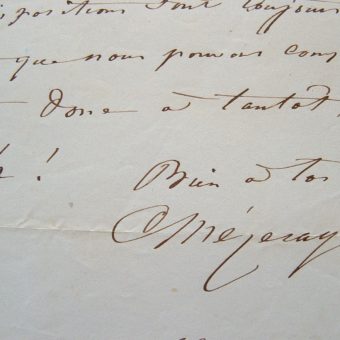 positions sont toujours
que nous pouvons
donc à tantôt,
!
Bien à toi
CMézeray